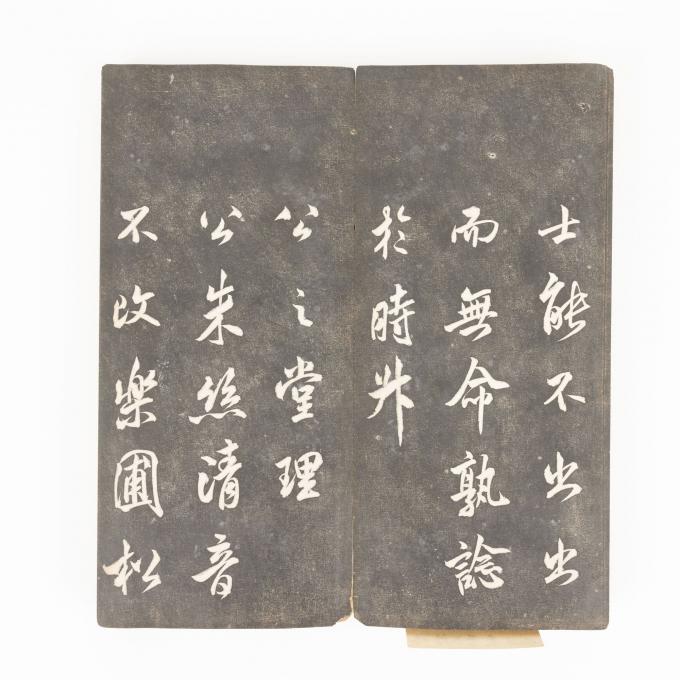 士能不出出
而無命孰諗
於時升
公之堂理
公朱絲清音
不改樂圃松